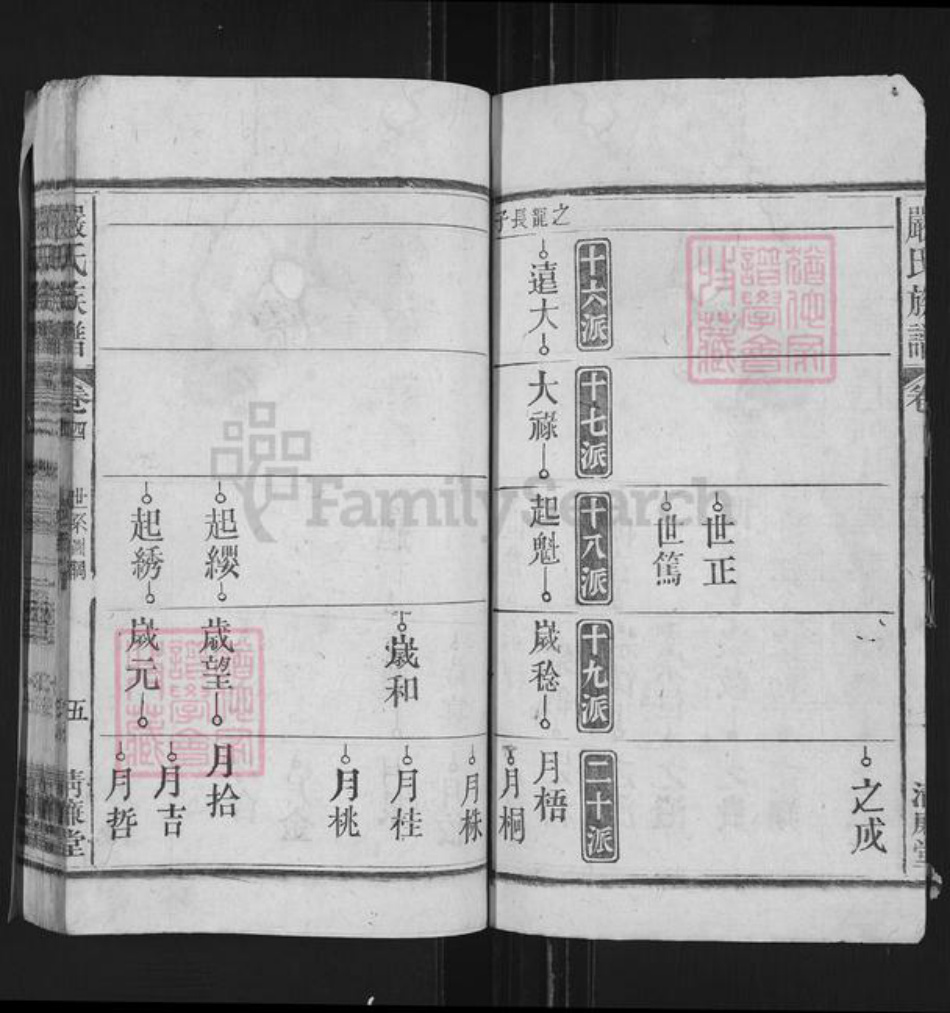 嚴氏族譜
卷
世正
世篤
之成
十六派
十七派
十八派
十九派
二十派
之龍長子
遠大
大祿
起魁
歲稔
月梧
月桐
月株
歲和
月桂
月桃
起纓
歲望
月拾
起綉
歲元
月吉
月哲
嚴氏族譜
卷四
世系
五
清廉堂
FamilySearch